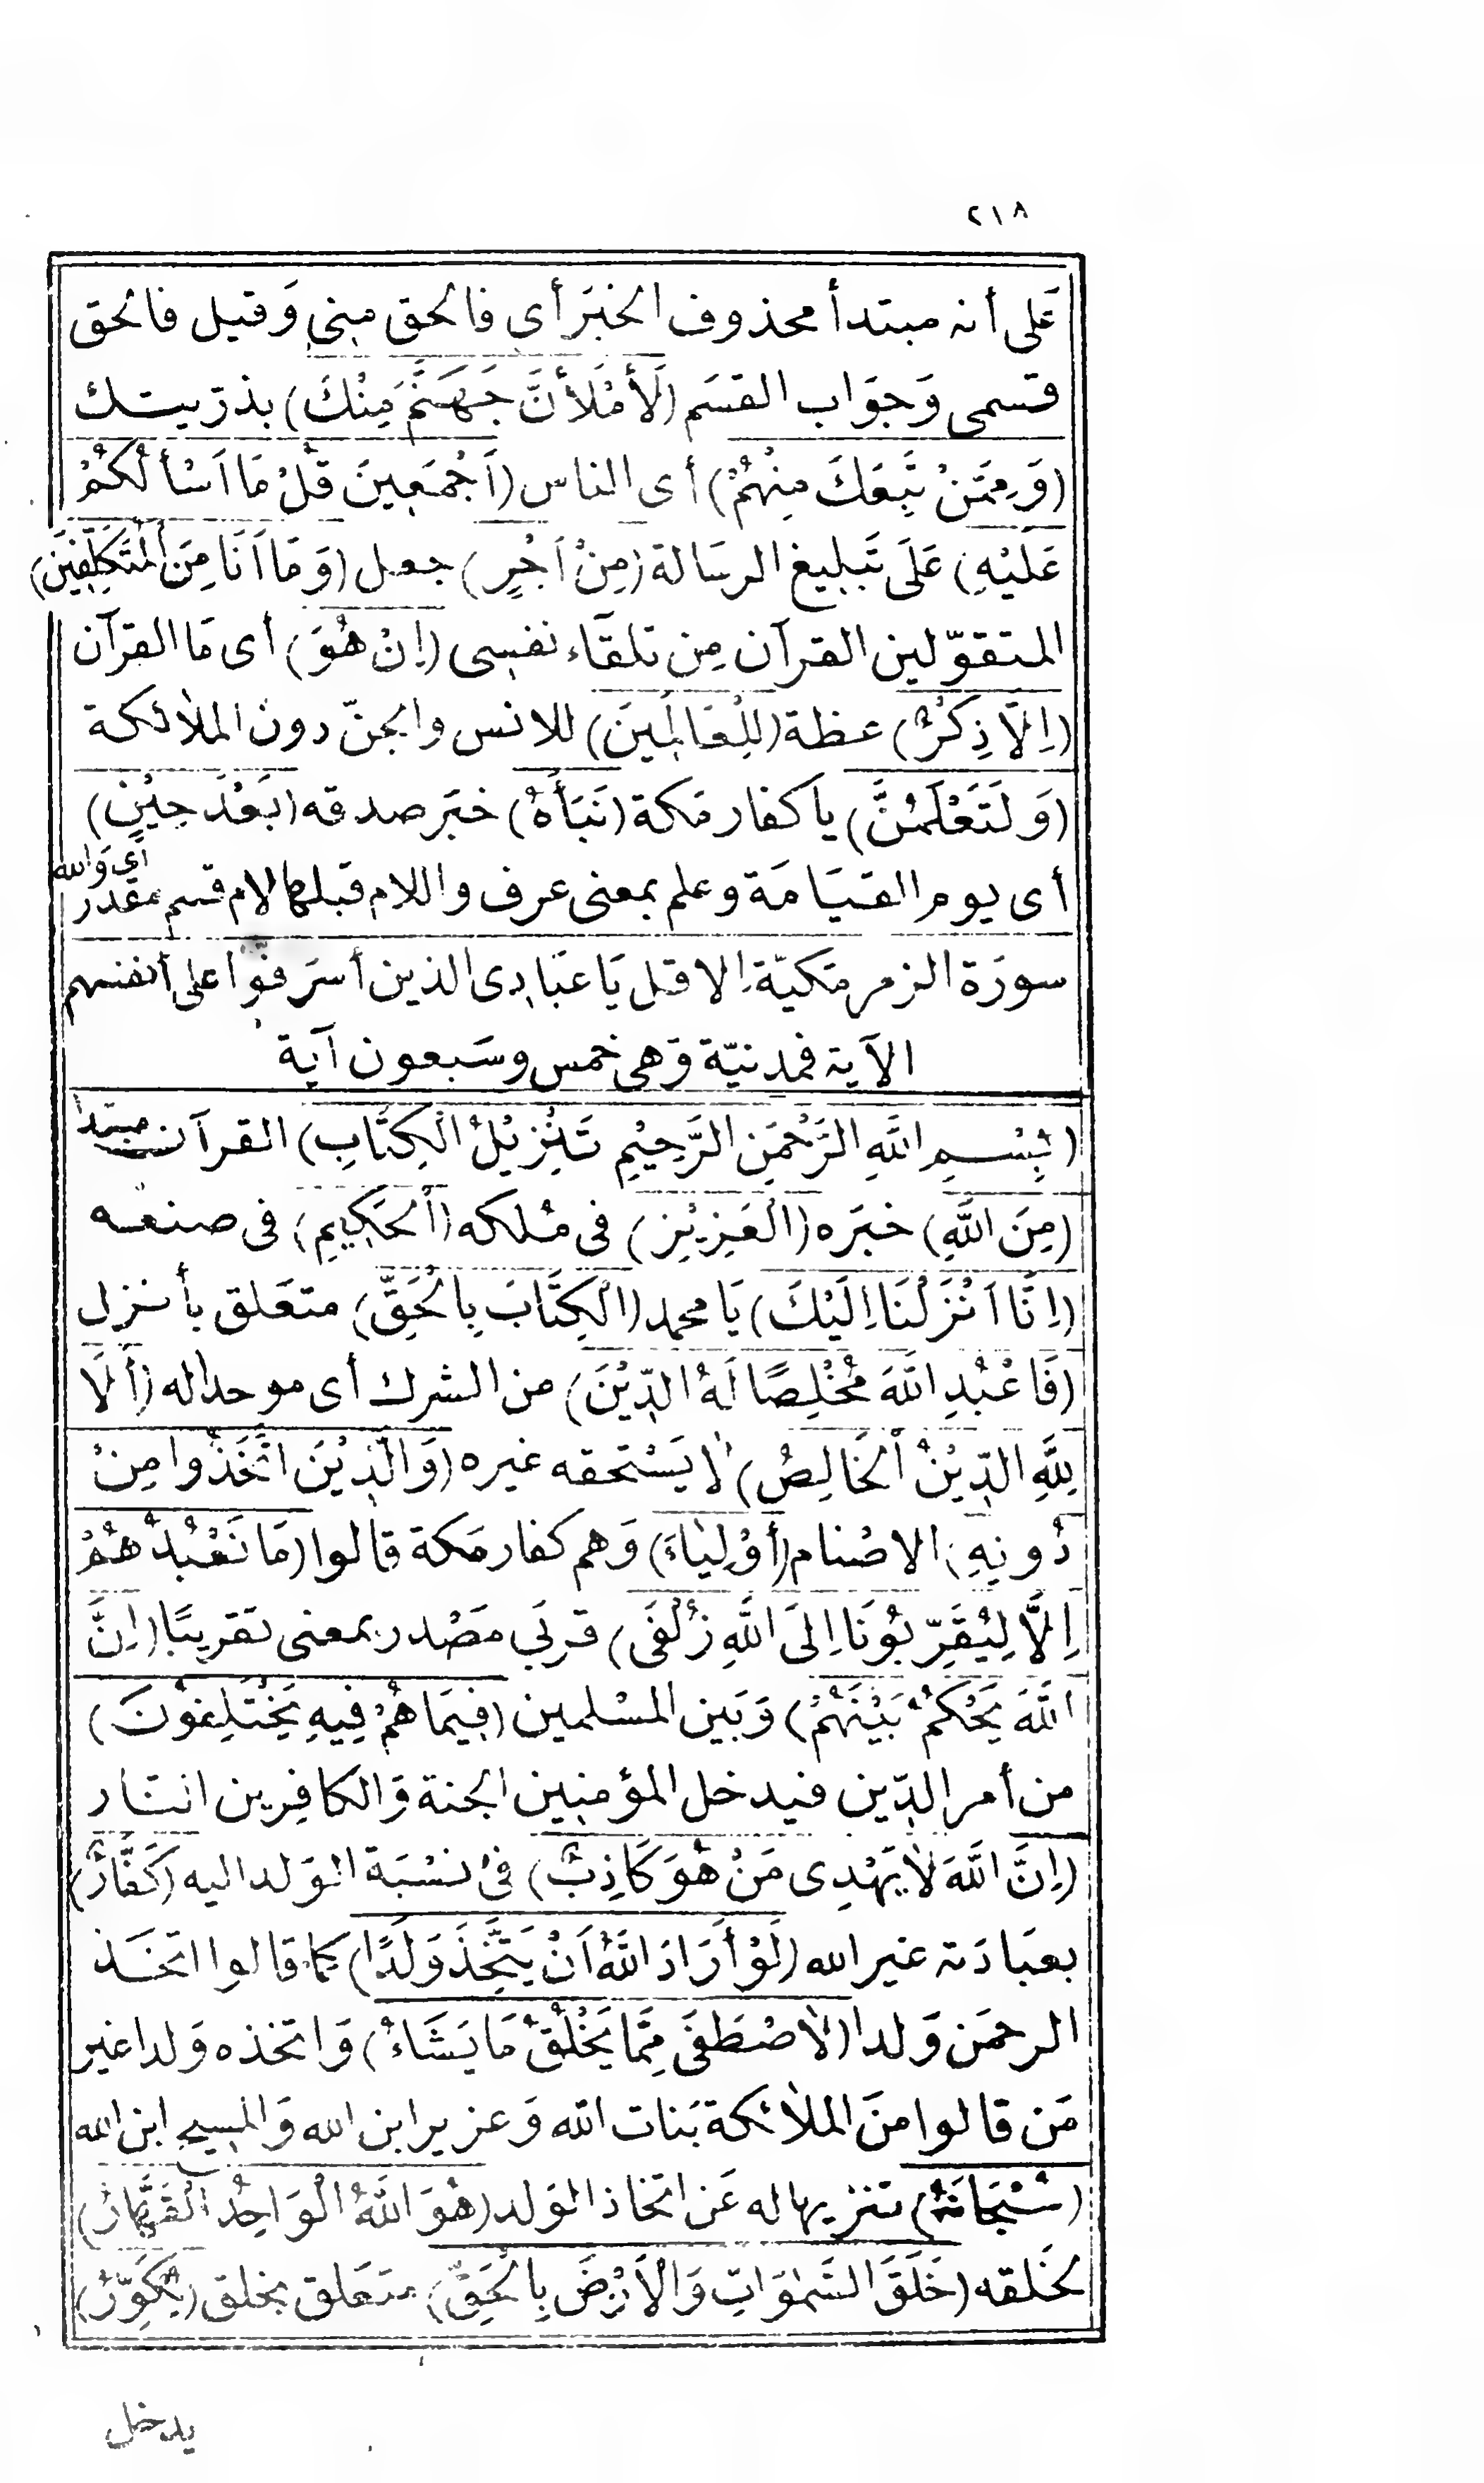 ٢١٨
عَلى أنه مبتدأ محذوف الخبَر أى فالحق منى وَقيل فالحق
قسمى وَجوَاب القسَم (لَأَمْلَأَنَّ جَهَنَّمَ مِنْكَ) بذرّيتك
(وَمِمَّنْ تَبِعَكَ مِنْهُمْ) أى الناس (اَجْمَعِينَ قُلْ مَا اَسْأَلُكُمْ
عَلَيْهِ) عَلَى تَبليغ الرسَالة (مِنْ اَجْرٍ) جعل (وَمَا اَنَا مِنَ الْمُتَكَلِّفِيْنَ)
المتقوّلين القرآن مِن تلقاء نفسى (اِنْ هُوَ) أى مَا القرآن
(اِلَّا ذِكْرٌ) عظة (لِلْعَالَمِينَ) للانس والجنّ دون الملائكة
(وَلَتَعْلَمُنَّ) يا كفار مَكة (نَبَأَهُ) خبَر صدقه (بَعْدَ حِيْنٍ)
أى يوم القيَامَة وعلم بمعنى عرف واللام قبلها لام قسم مقدر أى وَالله
سورَة الزمر مَكيّة الا قل يَا عبَادى الذين أسرَفوا على أنفسهم
الآية فمدنيّة وَهى خمس وسَبعون آية
(بِسْمِ اللَّهِ الرَّحْمَنِ الرَّحِيْمِ تَنْزِيْلُ الْكِتَابِ) القرآن مبتدا
(مِنَ اللَّهِ) خبَره (الْعَزِيْزِ) فى مُلكه (الْحَكِيمِ) فى صنعه
(اِنَّا اَنْزَلْنَا اِلَيْكَ) يَا محمد (الْكِتَابَ بِالْحَقِّ) متعَلق بأنزل
(فَاعْبُدِ اللَّهَ مُخْلِصًا لَهُ الدِّيْنَ) من الشرك أى موحدا له (أَلَا
لِلَّهِ الدِّيْنُ الْخَالِصُ) لا يَسْتحقه غيره (وَالَّذِيْنَ اتَّخَذُوا مِنْ
دُونِهِ) الاصْنام (أَوْلِيَاءَ) وَهم كفار مَكة قالوا (مَا نَعْبُدُهُمْ
اِلَّا لِيُقَرِّبُونَا اِلَى اللَّهِ زُلْفَى) قربَى مَصْدر بمعنى تقريبًا (اِنَّ
اللَّهَ يَحْكُمُ بَيْنَهُمْ) وَبَين المسْلمين (فِيمَا هُمْ فِيهِ يَخْتَلِفُونَ)
من أمر الدّين فيدخل المؤمنين الجنة وَالكافِرين النار
(اِنَّ اللَّهَ لَا يَهْدِى مَنْ هُوَ كَاذِبٌ) فى نسْبَة الوَلد اليه (كَفَّارٌ)
بعبَادَته غير الله (لَوْ أَرَادَ اللَّهُ اَنْ يَتَّخِذَ وَلَدًا) كما قالوا اتخَذ
الرحمَن وَلدا (لَاصْطَفَى مِمَّا يَخْلُقُ مَا يَشَاءُ) وَاتخذه وَلدا غير
مَن قالوا منَ الملائكة بَنات الله وَعزير ابن الله وَالمسيح ابن الله
(سُبْحَانَهُ) تنزيها له عَن اتخاذ الوَلد (هُوَ اللَّهُ الْوَاحِدُ الْقَهَّارُ)
لخَلقه (خَلَقَ السَّمٰوَاتِ وَالْاَرْضَ بِالْحَقِّ) متعَلق بخلق (يُكَوِّرُ)
يدخل